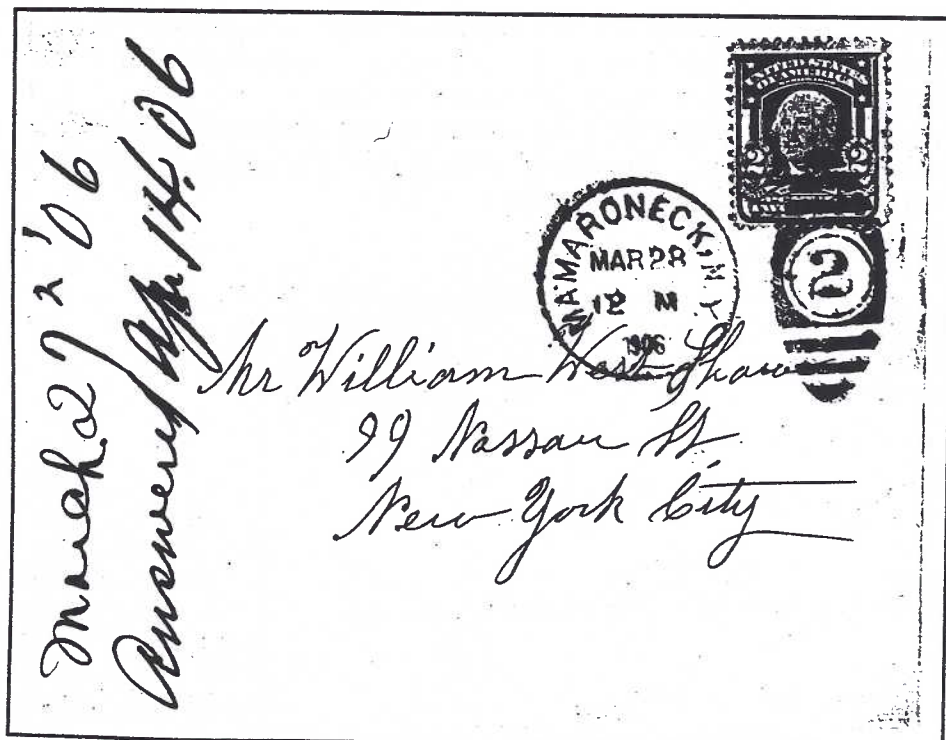 March 27 2 '06
Answered Apr 14. 06
UNITED STATES
OF AMERICA
2 2
MAMARONECK, N.Y.
MAR 28
12 M
1906
2
Mr William West Shaw
99 Nassau St
New York City